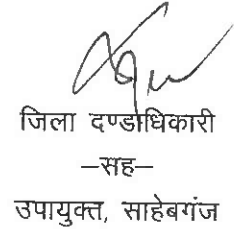 जिला दण्डाधिकारी
–सह–
उपायुक्त, साहेबगंज